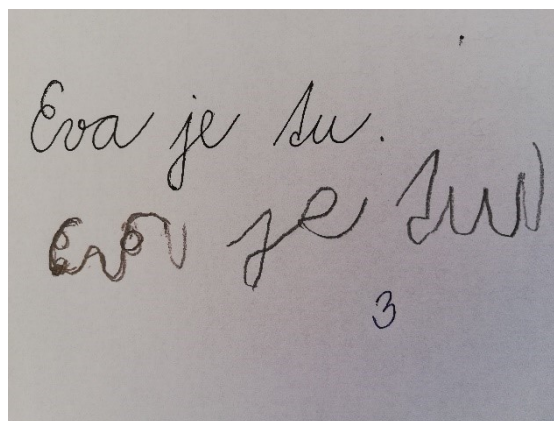 Eva je tu.
Eva je tu
3